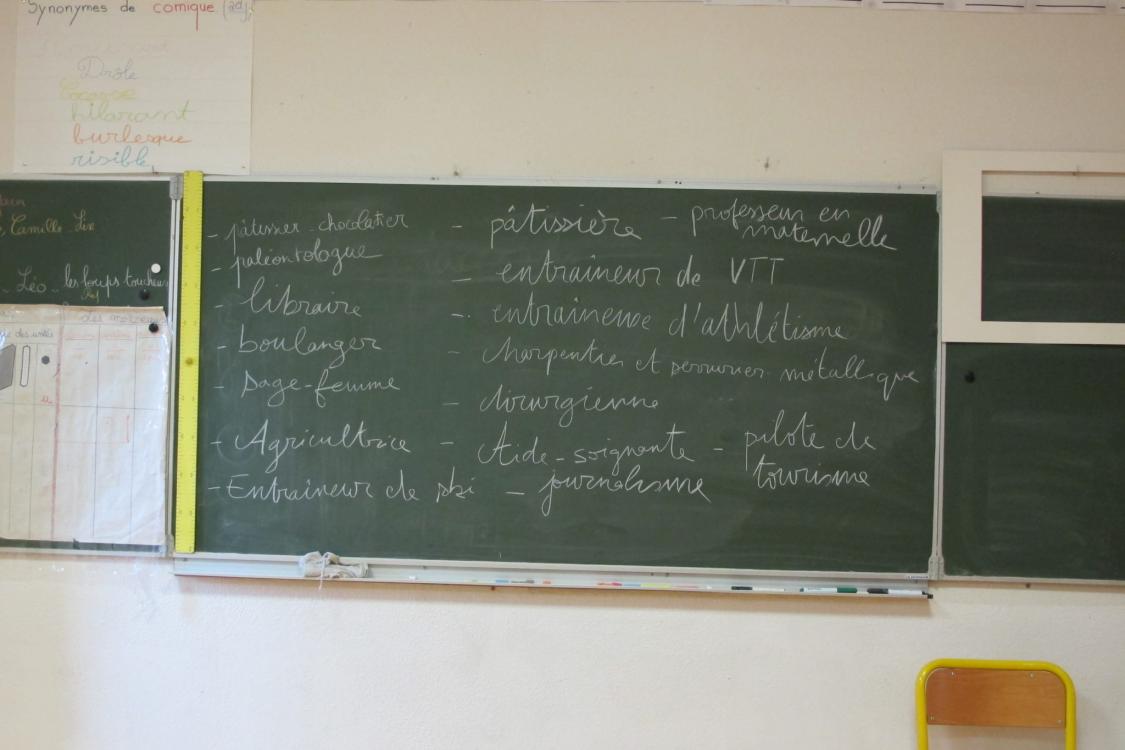 Synonymes de comique (adj)
Drôle
Cocasse
hilarant
burlesque
risible
, Camille - Lix
- Léo - les loups toucheurs
- pâtissier - chocolatier
- paléontologue
- libraire
- boulanger
- Sage-femme
- Agricultrice
- Entraineur de ski
- pâtissière - professeur en
maternelle
- entraineur de VTT
- entraineuse d'athlétisme
- charpentier et serrurier métallique
- chirurgienne
- Aide-soignante - pilote de
tourisme
- journalisme
des unités